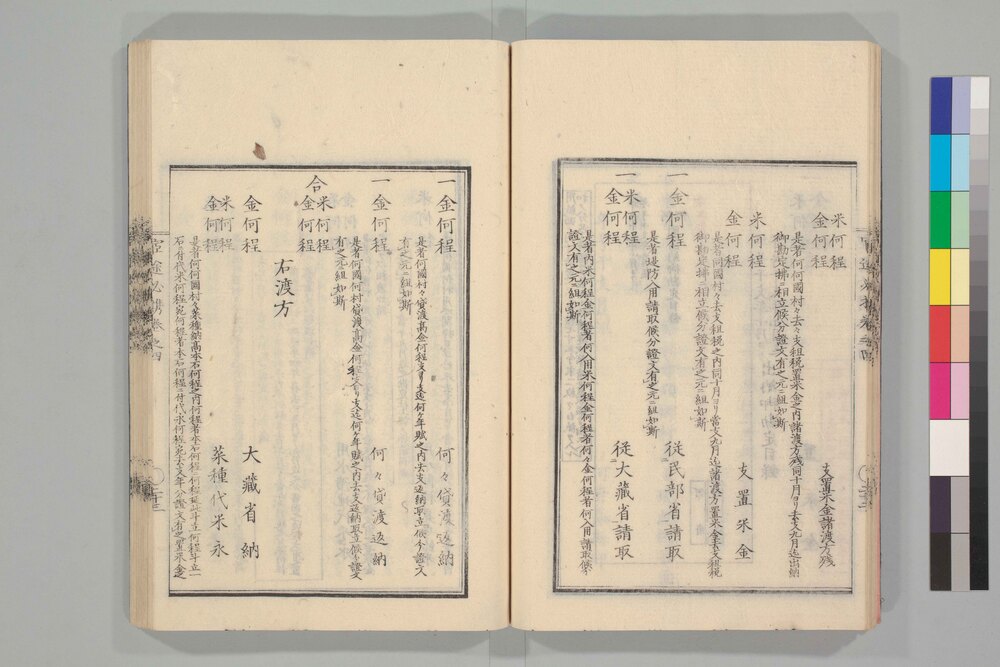 米何程
金何程
支置米金諸渡方残
是者何何國村々去々支租税置米金之内諸渡方残同十月ヨリ去支九月迄出納
御勘定排ニ相立候分證文有之元ニ組如斯
米何程
金何程
支置米金
是者何國村々去支租税之内同十月ヨリ當文九月迄諸渡方置米金去支租税
御勘定排ニ相立候分證文有之元ニ組如斯
一金何程
従民部省請取
是者堤防入用請取候分證文有之元ニ組如斯
一米何程
金何程
従大藏省請取
是者内米何程金何程者何入用米何程金何程者何々金何程者何入用請取候分
證文有之元ニ組如斯
一金何程
何々貸渡返納
是者何國村々貸渡高金何程支ヨリ支迄何ケ年賦之内去支返納取立候分證文
有之元ニ組如斯
一金何程
何々貸渡返納
是者何國何村貸渡高金何程支ヨリ支迄何ケ年賦之内去支返納取立候分證文
有之元ニ組如斯
合米何程
金何程
右渡方
金何程
大藏省納
米何程
金何程
菜種代米永
官途必携巻之四